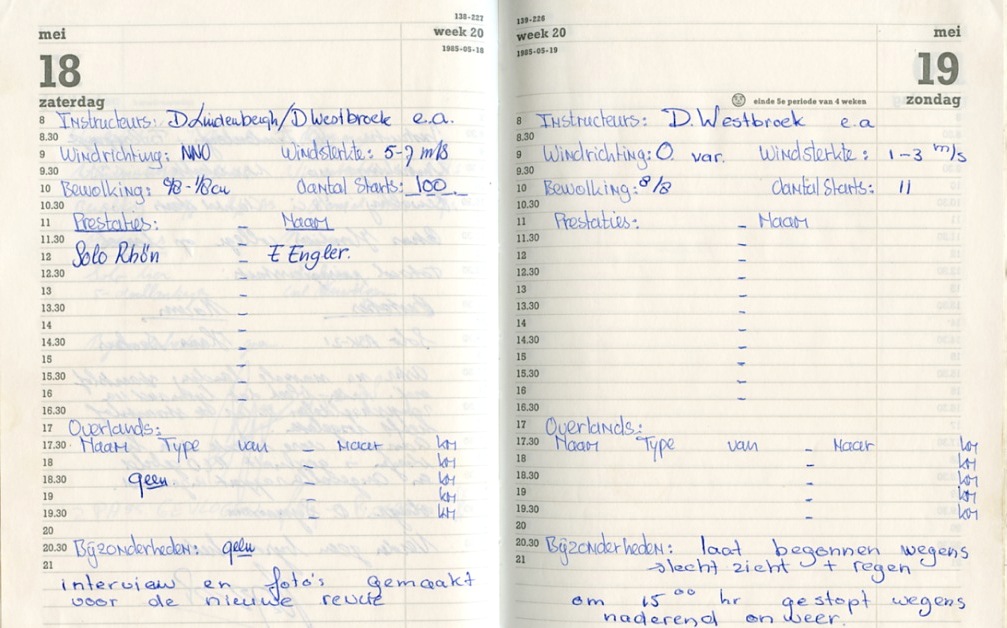 138-227
mei
week 20
1985-05-18
18
zaterdag
8 Instructeurs: D Lindenbergh/D Westbroek e.a.
8.30
9 Windrichting: NNO Windsterkte: 5-7 m/s
9.30
10 Bewolking: 8/8 - 1/8 cu aantal Starts: 100
10.30
11 Prestaties: - Naam
11.30
12 Solo Rhön - E Engler.
12.30 -
13 -
13.30 -
14 -
14.30 -
15 -
15.30 -
16 -
16.30
17 Overlands:
17.30 Naam Type van - Naar km
18 - km
18.30 geen. - km
19 - km
19.30 - km
20
20.30 Bijzonderheden: geen
21
interview en foto's gemaakt
voor de nieuwe revue
139-226
week 20
mei
1985-05-19
19
einde 5e periode van 4 weken
zondag
8 Instructeurs: D. Westbroek e.a
8.30
9 Windrichting: O. var. Windsterkte: 1-3 m/s
9.30
10 Bewolking: 8/8 aantal Starts: 11
10.30
11 Prestaties: - Naam
11.30 -
12 -
12.30 -
13 -
13.30 -
14 -
14.30 -
15 -
15.30 -
16 -
16.30
17 Overlands:
17.30 Naam Type van - Naar km
18 - km
18.30 - km
19 - km
19.30 - km
20
20.30 Bijzonderheden: laat begonnen wegens
21 slecht zicht + regen
om 15⁰⁰ hr gestopt wegens
naderend onweer.